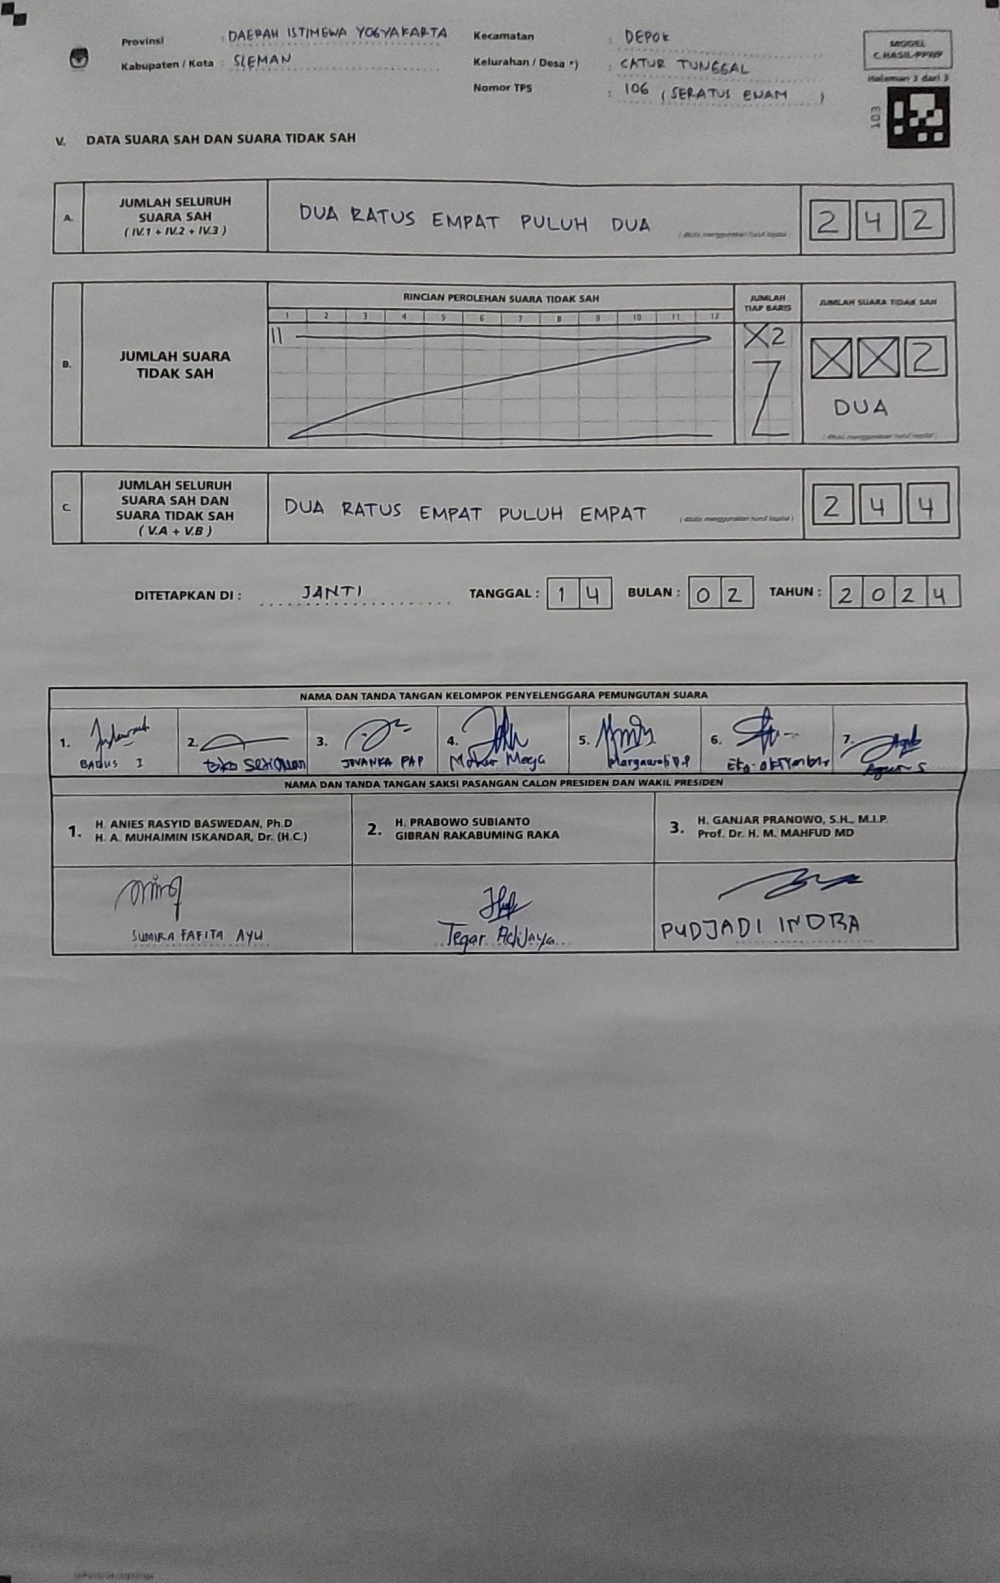 Provinsi : DAERAH ISTIMEWA YOGYAKARTA
Kabupaten / Kota : SLEMAN
Kecamatan : DEPOK
Kelurahan / Desa *) : CATUR TUNGGAL
Nomor TPS : 106 ( SERATUS ENAM )
MODEL
C.HASIL-PPWP
Halaman 3 dari 3
103
V. DATA SUARA SAH DAN SUARA TIDAK SAH
A. JUMLAH SELURUH
SUARA SAH
( IV.1 + IV.2 + IV.3 )
DUA RATUS EMPAT PULUH DUA
( ditulis menggunakan huruf kapital )
2 4 2
B. JUMLAH SUARA
TIDAK SAH
RINCIAN PEROLEHAN SUARA TIDAK SAH
1 2 3 4 5 6 7 8 9 10 11 12
II
JUMLAH
TIAP BARIS
X2
JUMLAH SUARA TIDAK SAH
X X 2
DUA
( ditulis menggunakan huruf kapital )
C. JUMLAH SELURUH
SUARA SAH DAN
SUARA TIDAK SAH
( V.A + V.B )
DUA RATUS EMPAT PULUH EMPAT
( ditulis menggunakan huruf kapital )
2 4 4
DITETAPKAN DI : JANTI TANGGAL : 1 4 BULAN : 0 2 TAHUN : 2 0 2 4
NAMA DAN TANDA TANGAN KELOMPOK PENYELENGGARA PEMUNGUTAN SUARA
1. BAGUS I
2.
3. JIVANKA PAP
4.
5.
6.
7. Agus S
NAMA DAN TANDA TANGAN SAKSI PASANGAN CALON PRESIDEN DAN WAKIL PRESIDEN
1. H. ANIES RASYID BASWEDAN, Ph.D
H. A. MUHAIMIN ISKANDAR, Dr. (H.C.)
2. H. PRABOWO SUBIANTO
GIBRAN RAKABUMING RAKA
3. H. GANJAR PRANOWO, S.H., M.I.P.
Prof. Dr. H. M. MAHFUD MD
SUMIRA FAFITA AYU
Tegar Adijaya
PUDJADI INDRA